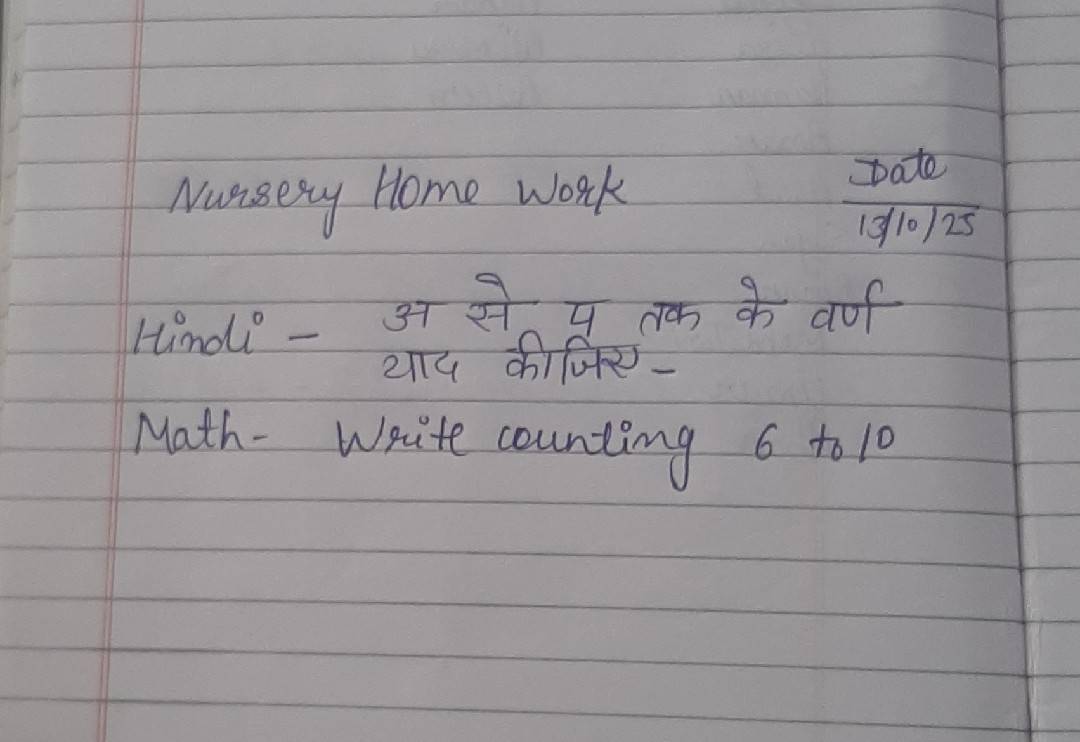 Nursery Home Work Date
13/10/25
Hindi - अ से प तक के वर्ण
याद कीजिए -
Math - Write counting 6 to 10